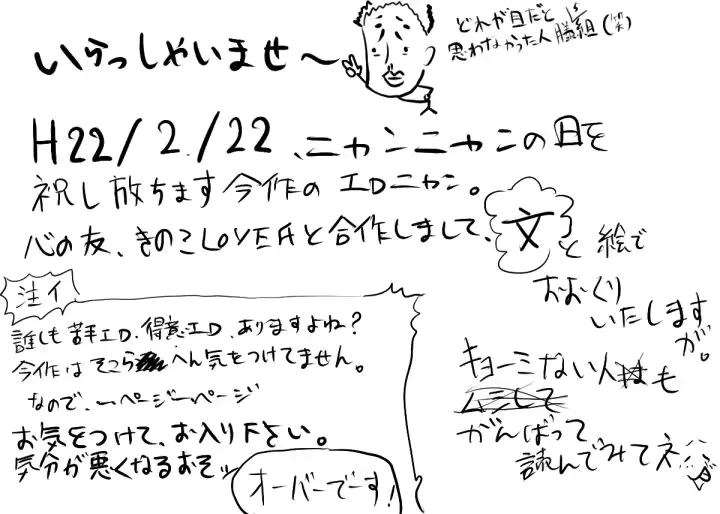 いらっしゃいませ〜
どれが目だと
思わなかった人は勝組(笑)
H22/2/22、ニャンニャンの日を
祝し放ちます今作のエロニャン。
心の友、きのこLOVEAと合作しまして、文と絵で
おおくり
いたします
が。
注イ
誰しも苦手エロ、得意エロ、ありますよね?
今作はそこらへん気をつけてません。
なので、一ページ一ページ
お気をつけて、お入り下さい。
気分が悪くなるおそッ
オーバーでーす!
キョーミない人も
ムシして
がんばって
読んでみてネ